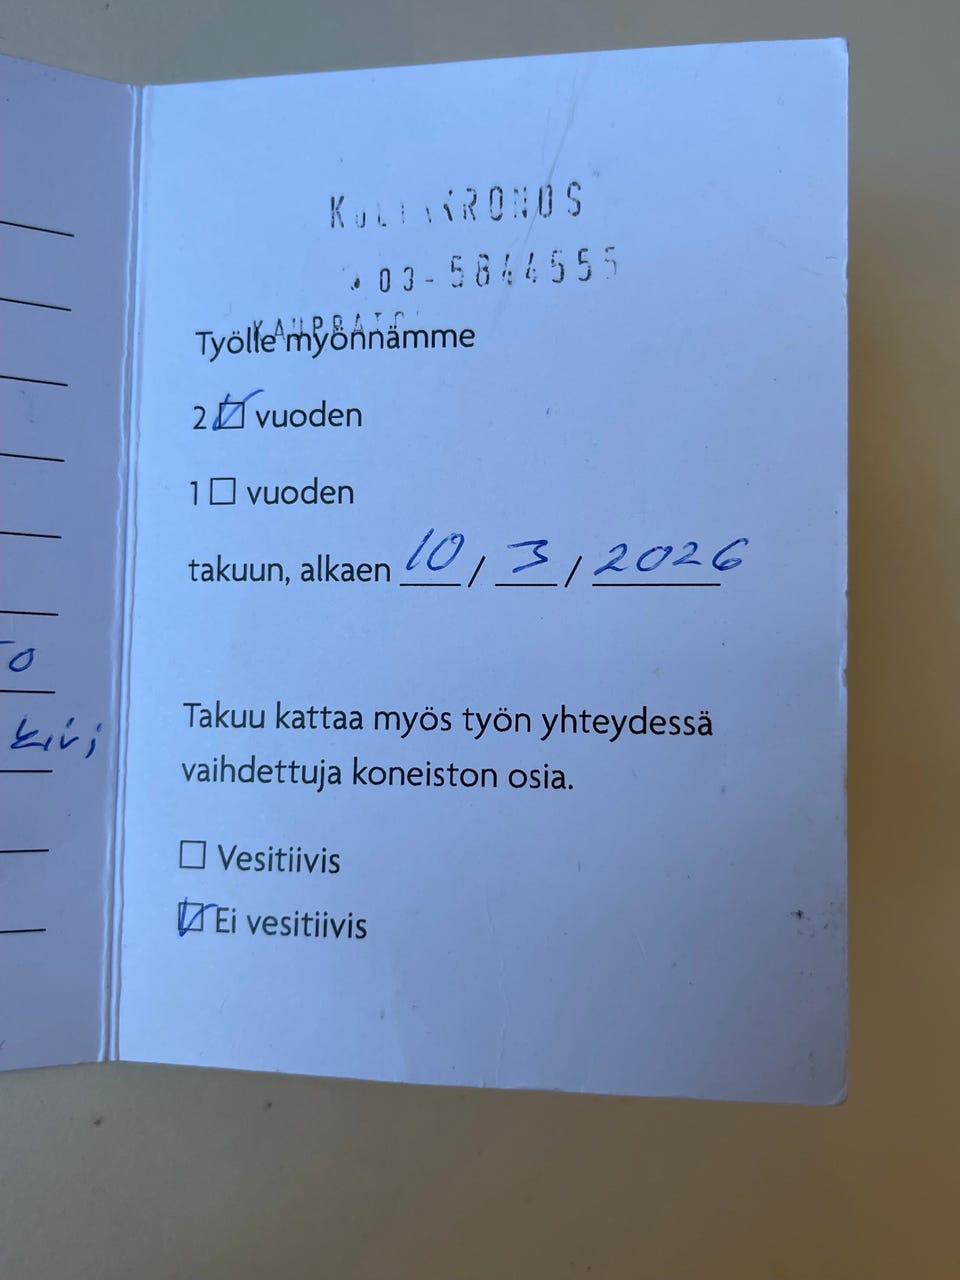 03-5844555
Työlle myönnämme
2 ☑ vuoden
1 ☐ vuoden
takuun, alkaen 10 / 3 / 2026
Takuu kattaa myös työn yhteydessä
vaihdettuja koneiston osia.
☐ Vesitiivis
☑ Ei vesitiivis